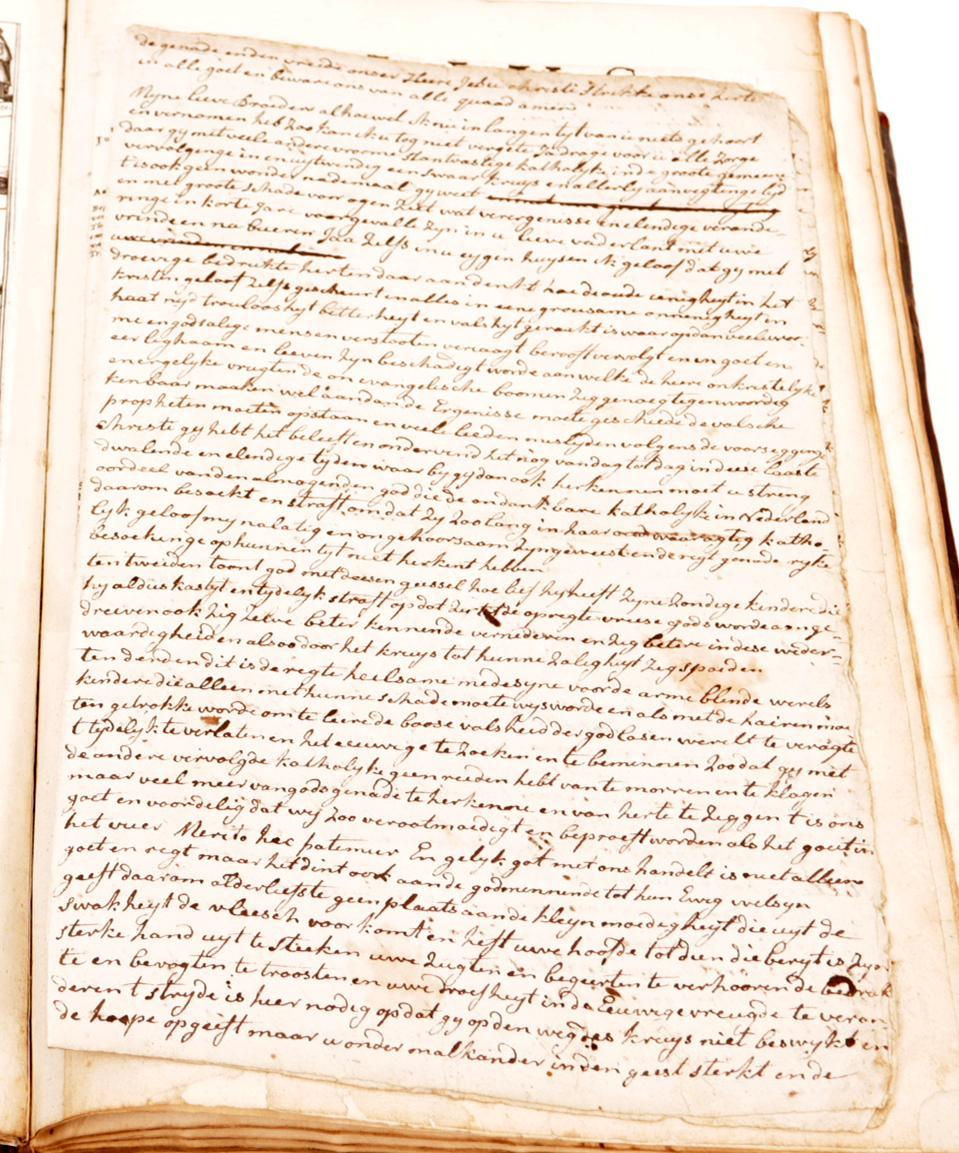 de genade ende vrede onser Heere Jesu christi sterke onse herte
in alle goet en beware ons van alle quaad amen
Myne lieve Broeders alhoewel ik nu in langen tyt van u niets gehoort
en vernomen heb zoo kan ik u tog niet vergete
daar gy met veele andere vrome stantvastege katholyke in de groote gemeen
vervolginge in en uytwendig een swaar kruys en allerly
t is ook geen wonder nademaal gy weet
en met groote schade voor ogen ziet wat verergenisse en elendige verande-
ringe in korte Jare voorgevalle zyn in u lieve vaderlant met uwe
vrinde en nabueren Jaa zelfs in u eygen huysen ik geloof dat gy met
droevige bedrukte herten daar aan denkt hoe de oude eenigheyt in het
kristen geloof zelfs gescheurt en alles in eene grousame oneenigheyt en
haat nyd trouloosheyt bitterheyt en valsheyt geraekt is waar op dan veele vro-
me en godsalege mensen verstooten verjaagt berooft vervolgt en in goet en
eer lighaam en leeven zyn beschadigt worde aan welke de heere onkristelyke
en engelyke vrugten de on evangelische boomen zig genoeg tegenwoordig
kenbaar maaken wel aan dan de Ergenisse moete geschiede de valsche
propheten moeten opstaan en veele leeden mislyden volgens de voorsegginge
Christi gy hebt het beleeft en ondervind het nog van dag tot dag in deese laaste
dwalende en elendige tyden waar by gy dan ook herkennen moet u streng
oordeel van den almogenden god die de ondankbare katholyke in Nederland
daarom besoekt en straft om dat zy zoo lang in haar oud waaragtig katho-
lyk geloof my nalatig en ongehoorsaam zyn geweest ende regt genade ryke
besoekinge op hunnen tyt niet herkent hebben
ten tweeden toont god met deesen geessel hoe lief hy heeft zyne zondige kindere die
hy aldus kastyt en tydelyk straft op dat zy tot de opregte vreese gods worde aange-
dreeven ook zig zelve beter kennende vernederen en zig betere in dese weder-
waardigheiden alsoo door het kruys tot hunne zaligheyt zig spoeden
ten derden dit is de regte heelsame medesyne voor de arme blende werels
kindere die alleen met hunne schade moete wys worde en als met de hairen moe
ten getrokke worde om te leere de boose valsheid der godlosen werelt te veragte
t tydelyk te verlaten en het eeuwege te zoeken en te beminnen zoo dat gy met
de andere vervolgde katholyke geen reeden hebt van te morren en te klagen
maar veel meer van gods genade te herkenne en van herte te zeggen t is ons
goet en voordelig dat wij zoo verootmoedigt en beproeft worden als het goet in
het vuer Merito hec patemur En gelyk got met ons handelt is niet alleen
goet en regt maar het dint ook aan de godminnende tot hun Eweg welsyn
geeft daarom alderliefste geen plaats aan de kleyn moedigheyt die uyt de
swakheyt de vleesch voorkomt en heft uwe hoofde tot dien die bereyt is zyn
sterke hand uyt te steeken uwe zugten en begeerten te verhooren de bedruk
te en bevogten te troosten en uwe droefheyt in de Eeuwige vreugde te veran
deren t stryde is hier nodig op dat gy op den weg des kruys niet beswykt en
de hoope opgeeft maar u onder malkander in den geest sterkt ende